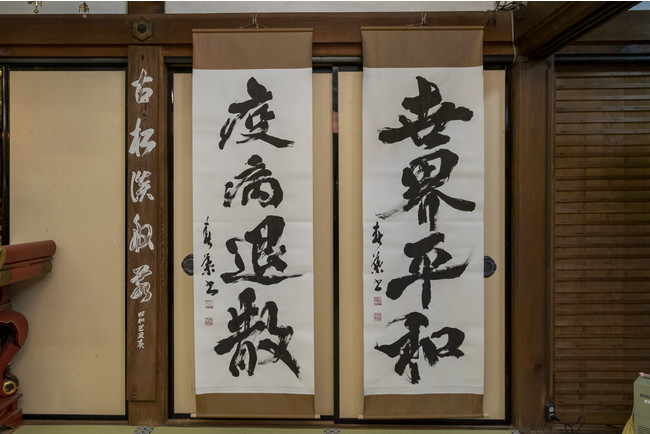 世界平和
疫病退散
古松談般若